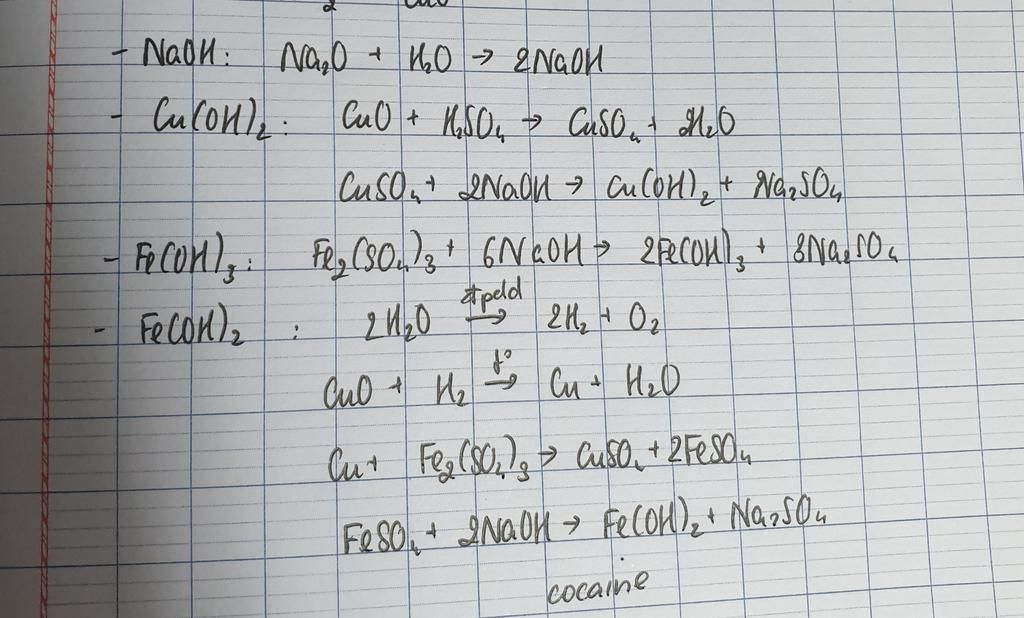 - NaOH: Na₂O + H₂O → 2NaOH
- Cu(OH)₂: CuO + H₂SO₄ → CuSO₄ + 2H₂O
CuSO₄ + 2NaOH → Cu(OH)₂ + Na₂SO₄
- Fe(OH)₃: Fe₂(SO₄)₃ + 6NaOH → 2Fe(OH)₃ + 3Na₂SO₄
- Fe(OH)₂ : 2H₂O đpdd→ 2H₂ + O₂
CuO + H₂ t°→ Cu + H₂O
Cu + Fe₂(SO₄)₃ → CuSO₄ + 2FeSO₄
FeSO₄ + 2NaOH → Fe(OH)₂ + Na₂SO₄
cocaine